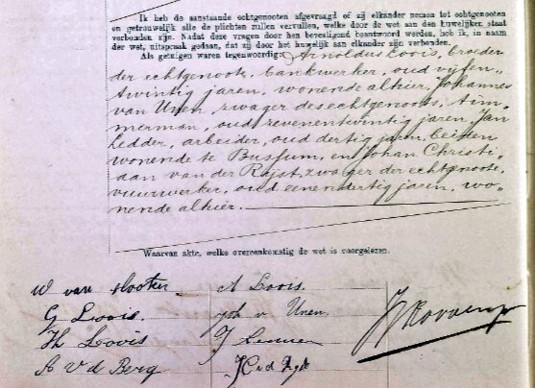 Ik heb de aanstaande echtgenooten afgevraagd of zij elkander nemen tot echtgenooten
en getrouwelijk alle de plichten zullen vervullen, welke door de wet aan den huwelijken staat
verbonden zijn. Nadat deze vragen door hen bevestigend beantwoord werden, heb ik, in naam
der wet, uitspraak gedaan, dat zij door het huwelijk aan elkander zijn verbonden.
Als getuigen waren tegenwoordig: Arnoldus Loois, broeder
der echtgenoote, bankwerker, oud vijfen-
twintig jaren, wonende alhier, Johannes
van Unen, zwager des echtgenoots, tim-
merman, oud zevenentwintig jaren, Jan
arbeider, oud dertig jaren, beiden
wonende te Bussum, en Johan Christi-
aan van der Rijst, zwager der echtgenoote,
vuurwerker, oud eenendertig jaren, wo-
nende alhier.
Waarvan akte, welke overeenkomstig de wet is voorgelezen.
W van
A Loois.
G Loois.
Joh v. Unen.
Th Loois
J
A v d Berg